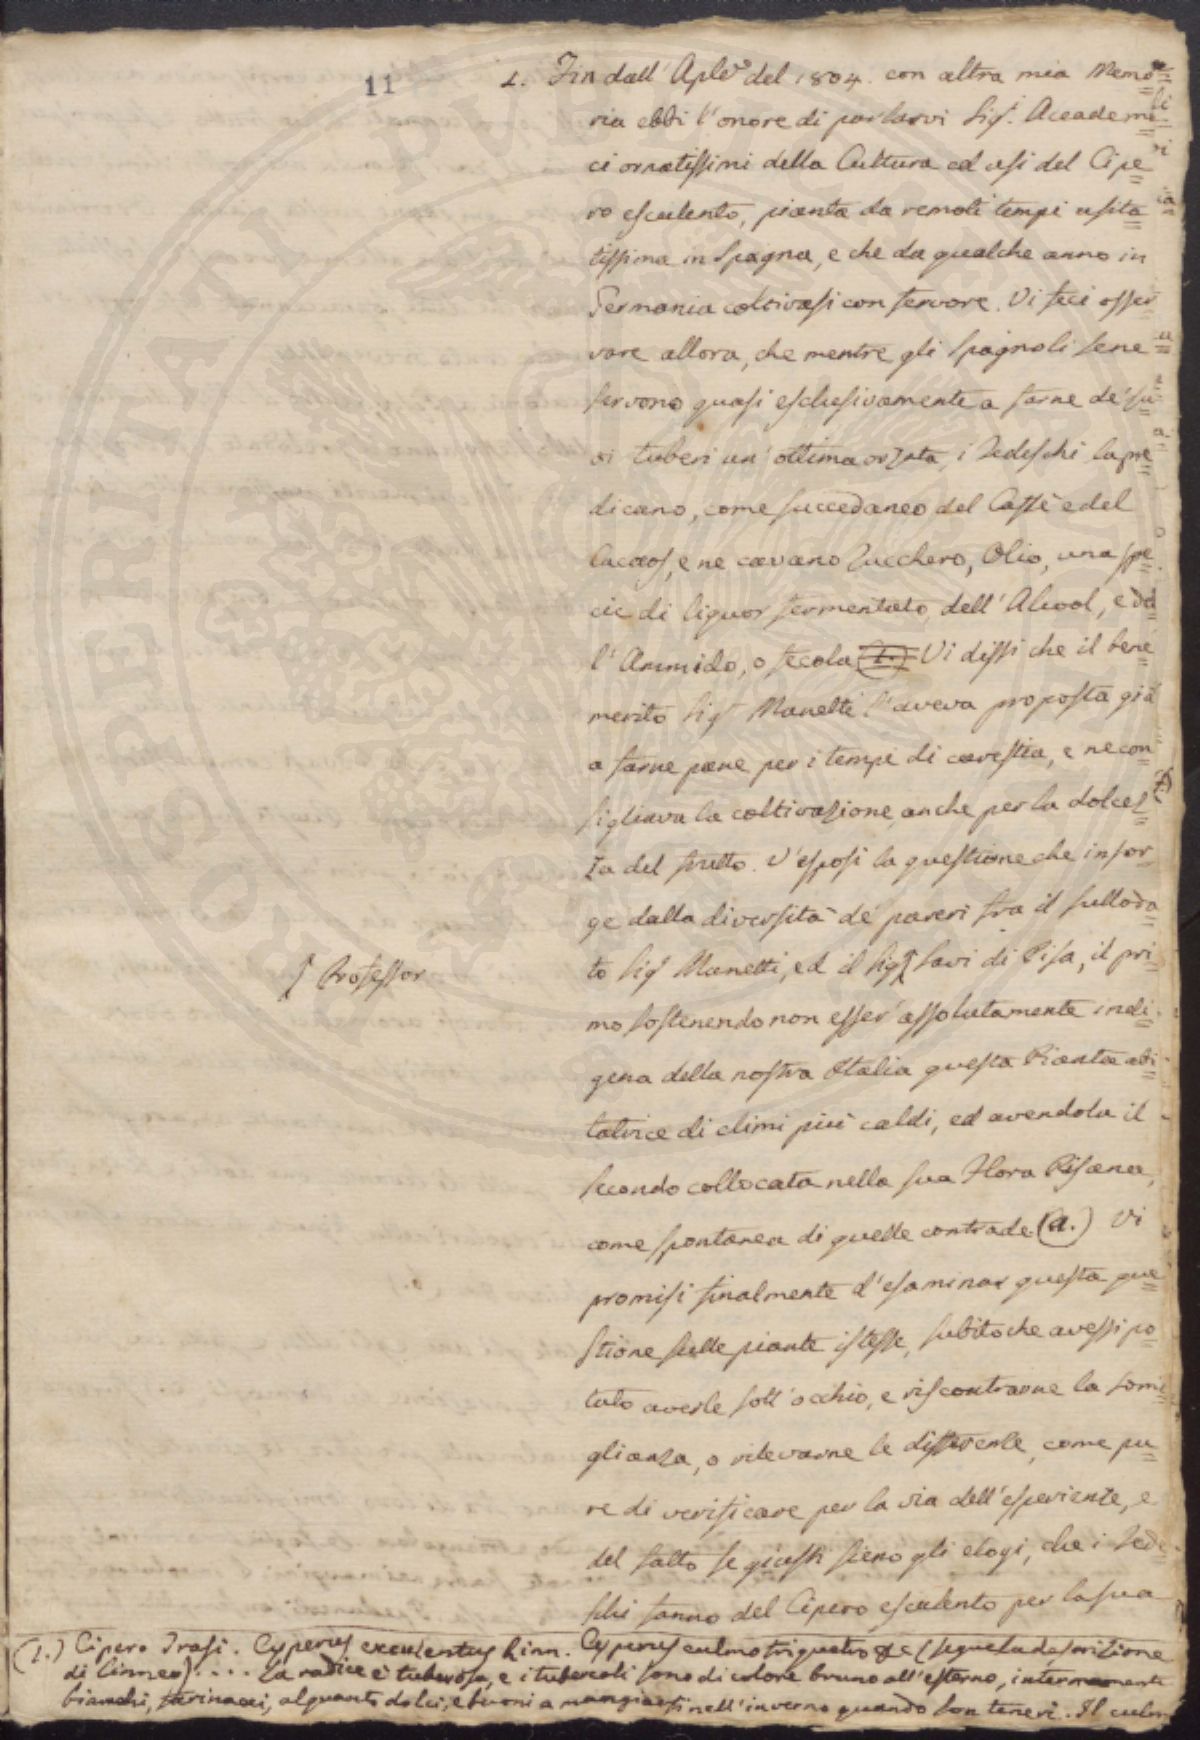 11
1. Fin dall' Aple del 1804. con altra mia Memo=
ria ebbi l'onore di parlarvi Sigi. Accademi=
ci ornatissimi della Cultura ed usi del Cipe=
ro esculento, pianta da remoti tempi usita=
tissima in Spagna, e che da qualche anno in
Germania coltivasi con fervore. Vi feci osser=
vare allora, che mentre gli Spagnoli sene
servono quasi esclusivamente a farne de' su=
oi tuberi un' ottima orzata, i Tedeschi la pre=
dicano, come succedaneo del Caffè e del
Cacaos, e ne cavano Zucchero, Olio, una spe=
cie di liquor fermentato, dell' Alcool, e del=
l' Ammido, o fecola (1.) Vi dissi che il bene=
merito Sigr Manetti l'aveva proposta già
a farne pane per i tempi di carestia, e ne con=
sigliava la coltivazione anche per la dolcez=
za del frutto. V'esposi la questione che insor=
ge dalla diversità de' pareri fra il sulloda=
to Sigr Manetti, ed il Sigr Savi di Pisa, il pri=
Professor
mo sostenendo non esser' assolutamente indi=
gena della nostra Italia questa Pianta abi=
tatrice di climi più caldi, ed avendola il
secondo collocata nella sua Flora Pisana,
come spontanea di quelle contrade (a.) Vi
promisi finalmente d'esaminar questa que=
stione sulle piante istesse, subito che avessi po=
tuto averle sott'occhio, e riscontrarne la somi=
glianza, o rilevarne le differenze, come pu=
re di verificare per la via dell'esperienze, e
del fatto se giusti sieno gli elogi, che i Tede=
schi fanno del Cipero esculento per la sua
(1.) Cipero Trasi. Cyperus exculentus Linn. Cyperus culmo triquetro &c (segue la descrizione
di Linneo).... La radice è tuberosa, e i tubercoli sono di colore bruno all'esterno, internamente
bianchi, farinacei, alquanto dolci, e buoni a mangiarsi nell'inverno quando son teneri. Il culm